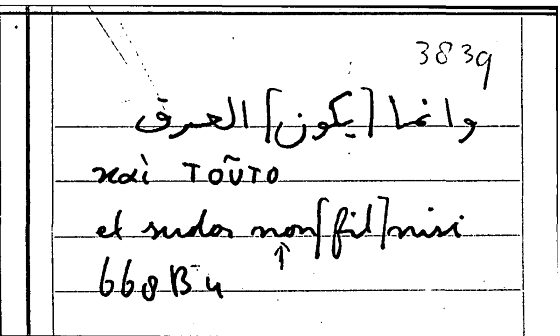 3839
وانما [يكون] العرق
καὶ τοῦτο
et sudor non [fit] nisi
↑
668B4